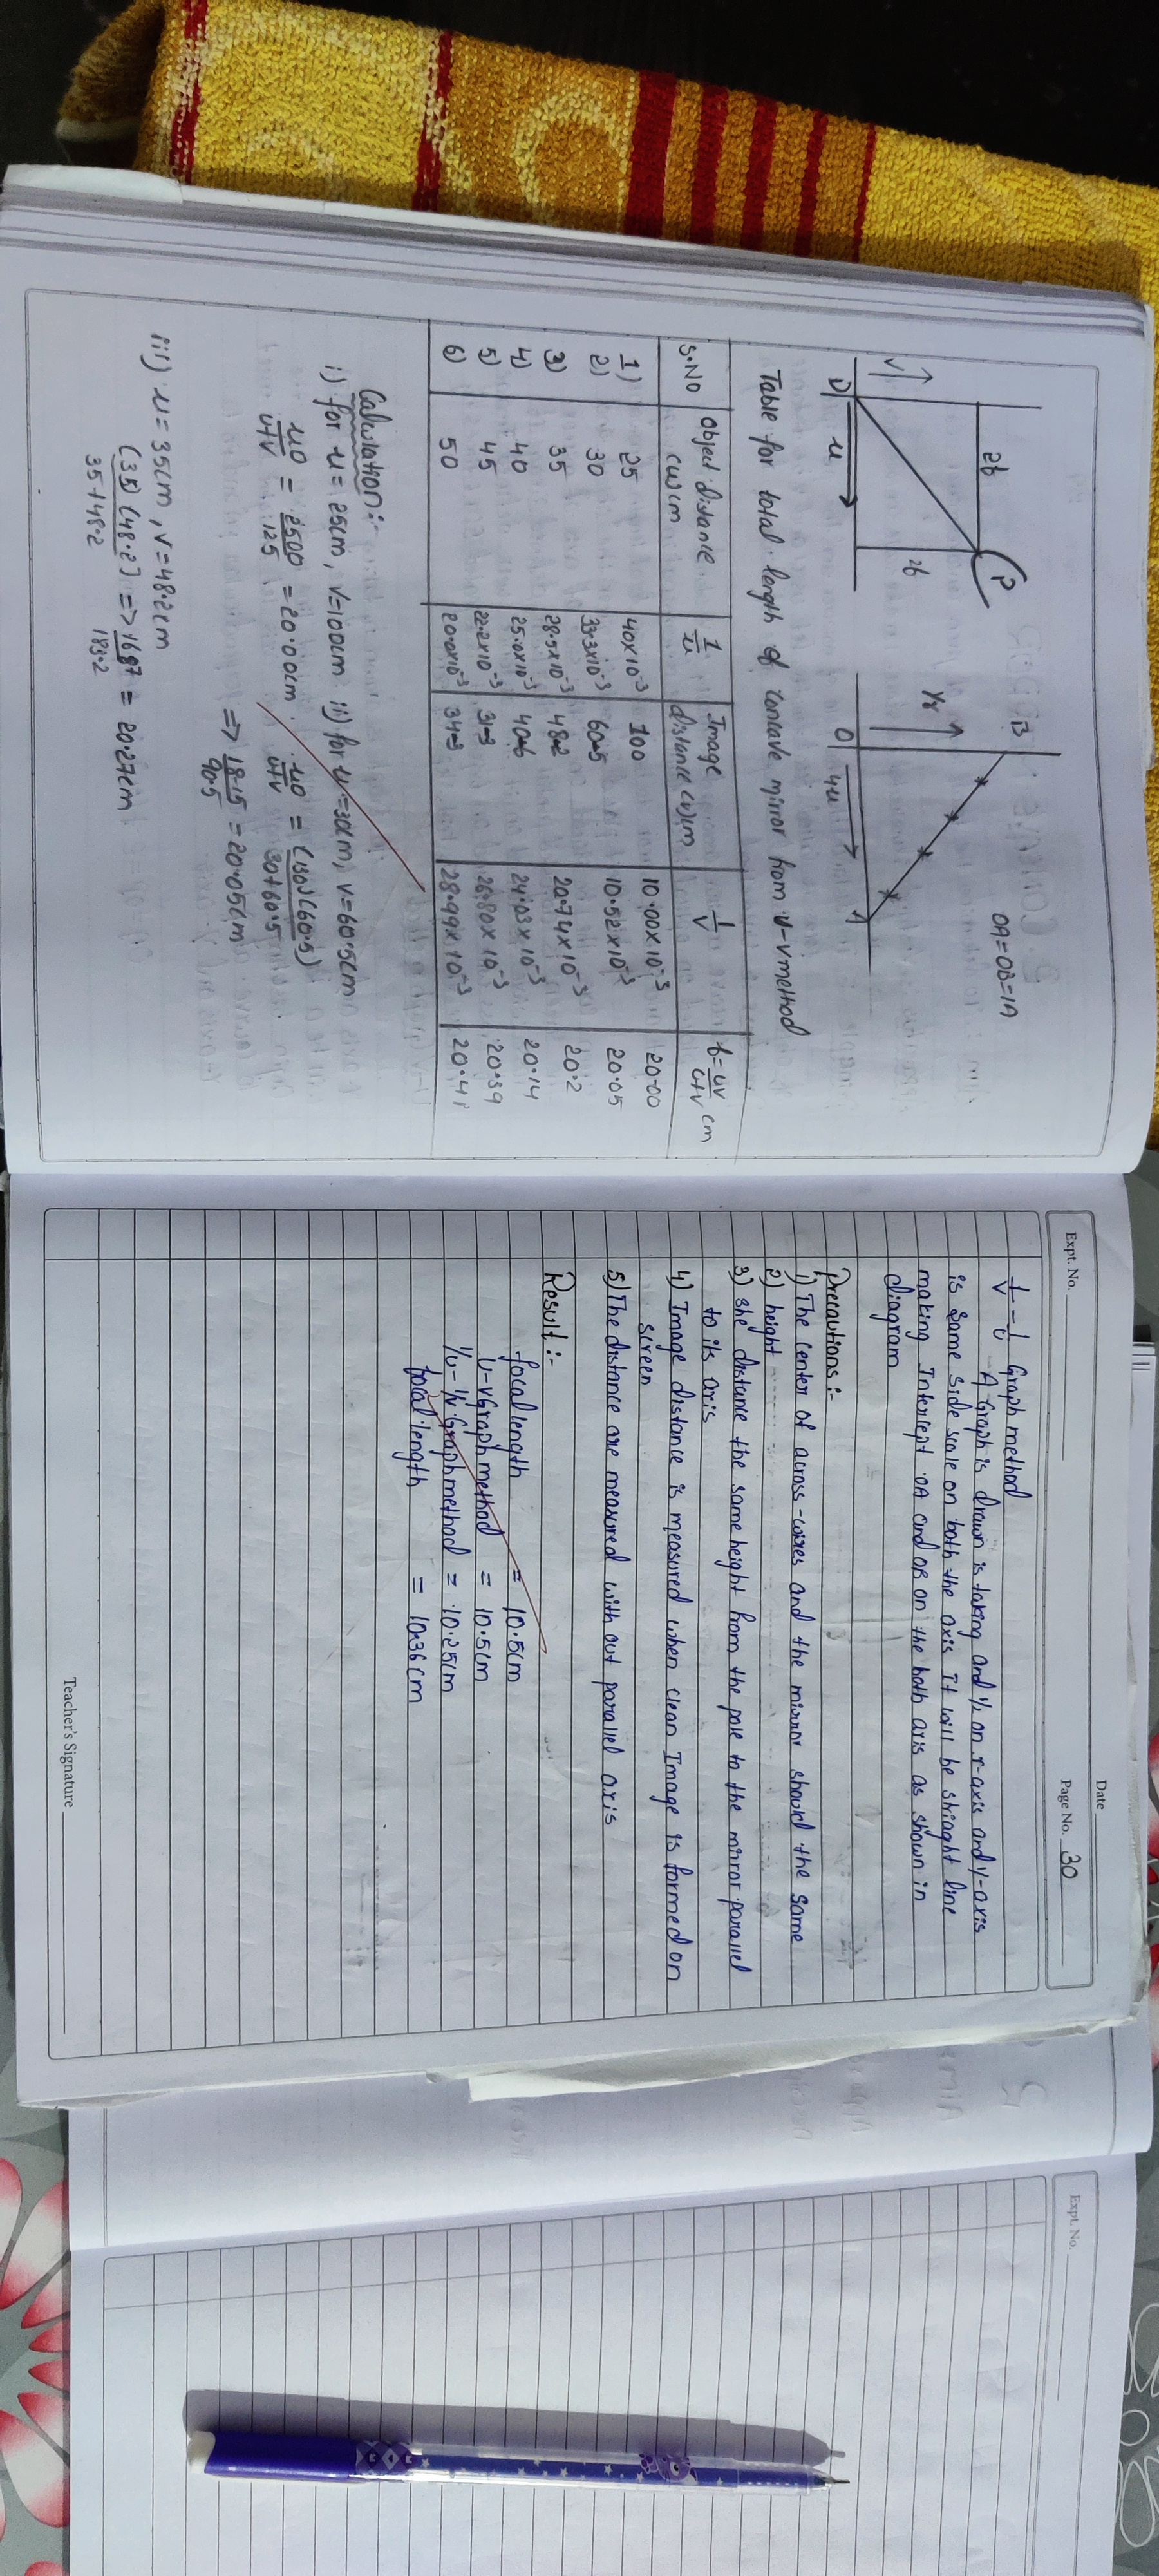 2f
P
2f
V
D
u
OA=OB=1A
B
1/v
O
A
Table for total length of concave mirror from u-v method
S.No
Object distance (u)cm
1/u
Image distance (v)cm
1/v
f=uv/u+v cm
1) 25 40x10⁻³ 100 10.00x10⁻³ 20.00
2) 30 33.3x10⁻³ 60.5 10.52x10⁻³ 20.05
3) 35 28.5x10⁻³ 48.2 20.74x10⁻³ 20.2
4) 40 25.0x10⁻³ 24.03x10⁻³ 20.14
5) 45 22.2x10⁻³ 26.80x10⁻³ 20.39
6) 50 20.0x10⁻³ 28.99x10⁻³ 20.41
Calculation:-
i) for u = 25cm, v=100cm ii) for u=30cm, v=60.5cm
= 2500/125 = 20.00cm. = (30)(60.5)/30+60.5
=> 18.15/90.5 = 20.05cm
iii) u = 35cm, v=48.2cm
(35)(48.2)/35+48.2 => = 20.27cm
Expt. No.
Date
Page No. 30
Graph method
A Graph is drawn is taking and 1/2 on x-axis and y-axis
is same side scale on both the axis It will be striaght line
making Intercept OA and OB on the both axis as shown in
diagram
Precautions:-
1) The center of across-wires and the mirror should the same
2) height
3) she distance the same height from the pole to the mirror parallel
to its axis
4) Image distance is measured when clean Image is formed on
screen
5) The distance are measured with out parallel axis
Result:-
focal length = 10.5cm
u-v Graph method = 10.5cm
1/u-1/v Graph method = 10.25cm
focal length = 10.36cm
Teacher's Signature
Expt. No.